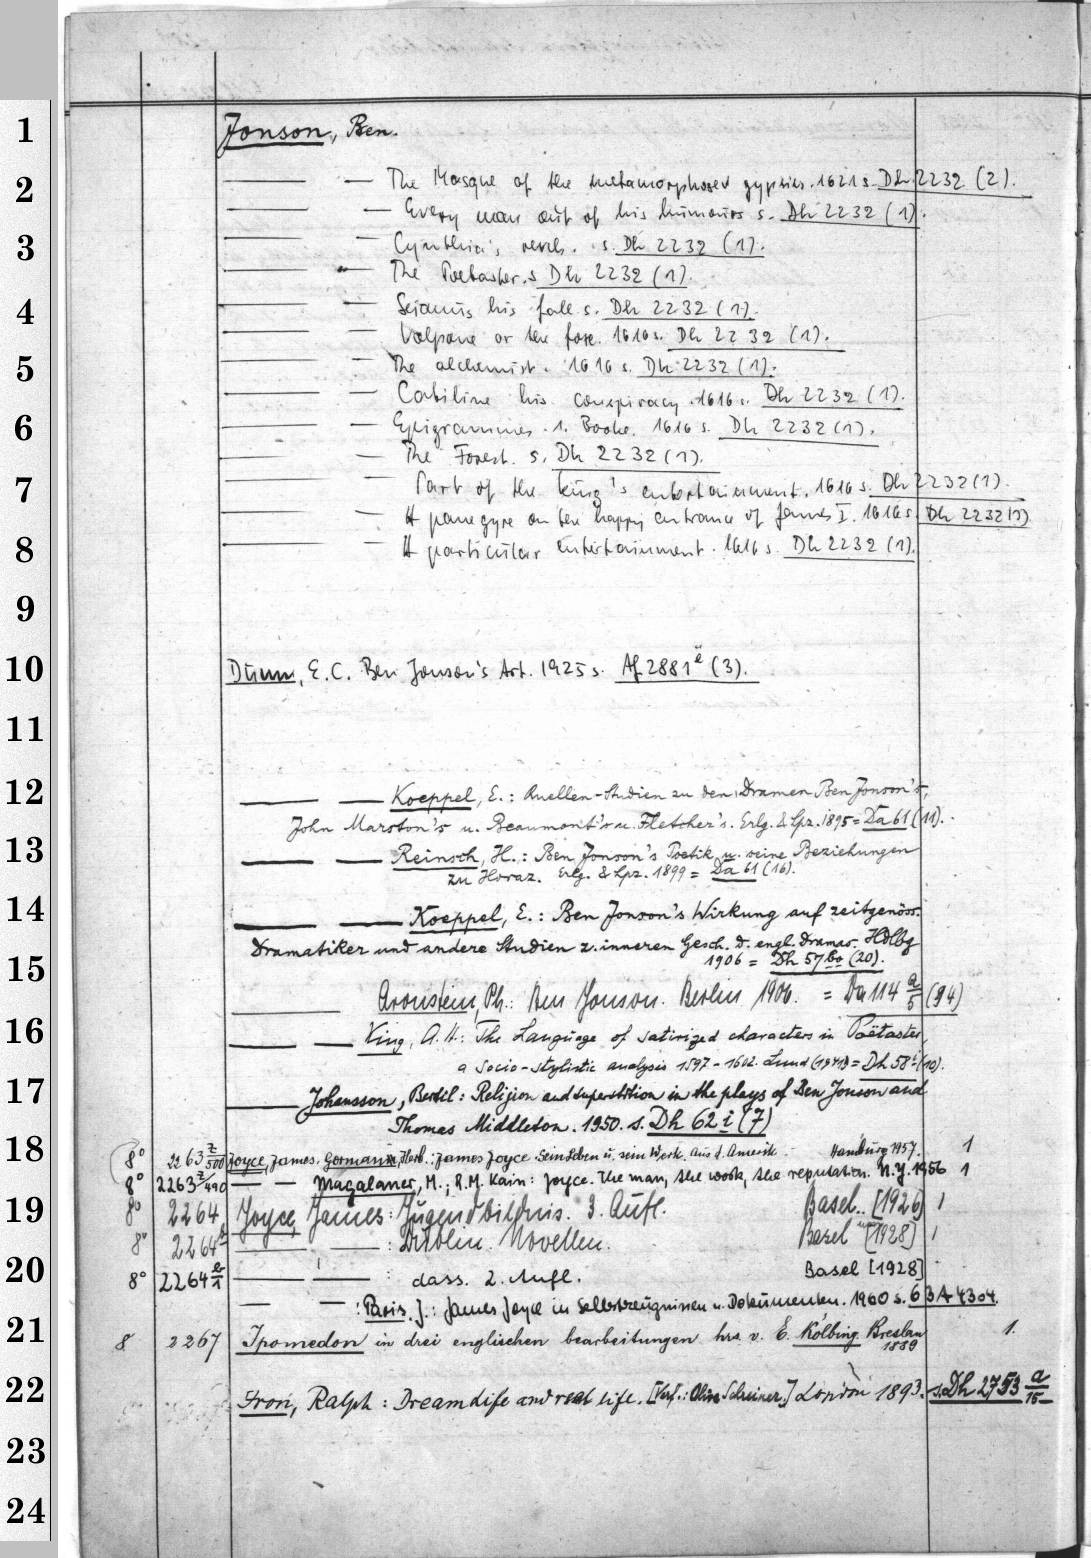 1 Jonson, Ben.
2 — — The Masque of the metamorphosed gypsies. 1621 s. Dh 2232 (2).
— — Every man out of his humours s. Dh 2232 (1).
3 — — Cynthia's revels. s. Dh 2232 (1).
— — The Poetaster. s. Dh 2232 (1).
4 — — Sejanus his fall s. Dh 2232 (1).
— — Volpone or the foxe. 1616 s. Dh 2232 (1).
5 — The alchemist. 1616 s. Dh 2232 (1).
— — Catiline his conspiracy. 1616 s. Dh 2232 (1).
6 — — Epigrammes. 1. Booke. 1616 s. Dh 2232 (1).
— — The Forest. s. Dh 2232 (1).
7 — — Part of the king's entertainment. 1616 s. Dh 2232 (1).
— — A panegyre on the happy entrance of James I. 1616 s. Dh 2232 (1)
8 — — A particular entertainment. 1616 s. Dh 2232 (1).
9
10 Dunn, E. C. Ben Jonson's Art. 1925 s. Af 2881 e (3).
11
12 — — Koeppel, E.: Quellen-Studien zu den Dramen Ben Jonson's,
John Marston's u. Beaumont's u. Fletcher's. Erlg. & Lpz. 1895 = Da 61 (11).
13 — — Reinsch, H.: Ben Jonson's Poetik u. seine Beziehungen
zu Horaz. Erlg. & Lpz. 1899 = Da 61 (16).
14 — — Koeppel, E.: Ben Jonson's Wirkung auf zeitgenöss.
Dramatiker und andere Studien z. inneren Gesch. d. engl. Dramas. Hdlbg
15 1906 = Dh 57 bo (20).
— Aronstein, Ph.: Ben Jonson. Berlin 1906. = Da 114 a/5 (34)
16 — — King, A. H.: The Language of satirized characters in Poëtaster,
a socio-stylistic analysis 1597-1602. Lund (1941) = Dh 58 i (10).
17 — Johansson, Bertil: Religion and superstition in the plays of Ben Jonson and
Thomas Middleton. 1950. s. Dh 62 i (7)
18 8° 2263 z/500 Joyce, James. Gorman, Herb.: James Joyce. Sein Leben u. sein Werk. Aus d. Amerik. Hamburg 1957. 1
8° 2263 z/490 — — Magalaner, M., R.M. Kain: Joyce. The man, the work, the reputation. N.Y. 1956 1
19 8° 2264 Joyce, James: Jugendbildnis. 3. Aufl. Basel. [1926] 1
8° 2264 — — : Dublin. Novellen. Basel [1928] 1
20 8° 2264 — — : dass. 2. Aufl. Basel [1928]
— — : Paris, J.: James Joyce in Selbstzeugnissen u. Dokumenten. 1960 s. 63 A 4304.
21 8 2267 Ipomedon in drei englischen bearbeitungen hrs. v. E. Kölbing. Breslau 1889 1.
22 Iron, Ralph: Dream life and real life. [Verf.: Olive Schreiner.] London 1893. s. Dh 2753 a/15
23
24